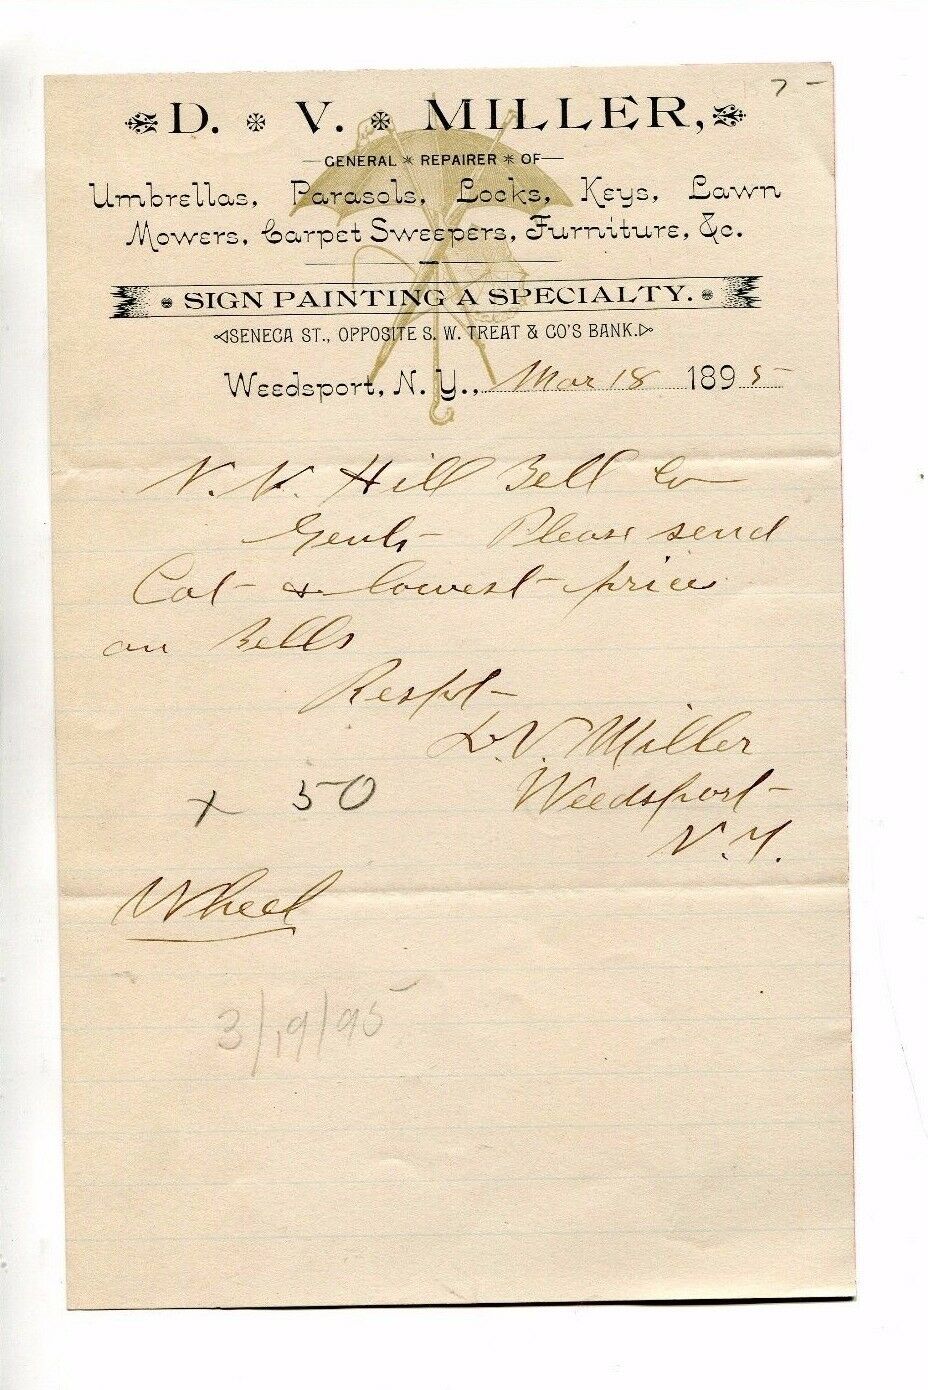 7 -
D. V. MILLER,
GENERAL * REPAIRER * OF
Umbrellas, Parasols, Locks, Keys, Lawn
Mowers, Carpet Sweepers, Furniture, &c.
SIGN PAINTING A SPECIALTY.
SENECA ST., OPPOSITE S. W. TREAT & CO'S BANK.
Weedsport, N. Y., Mar 18 1895
N. N. Hill Bell Co
Gents - Please send
Cat - & lowest price
on Bells
Respt -
D. V. Miller
x 50 Weedsport -
N. Y.
Wheel
3/19/95